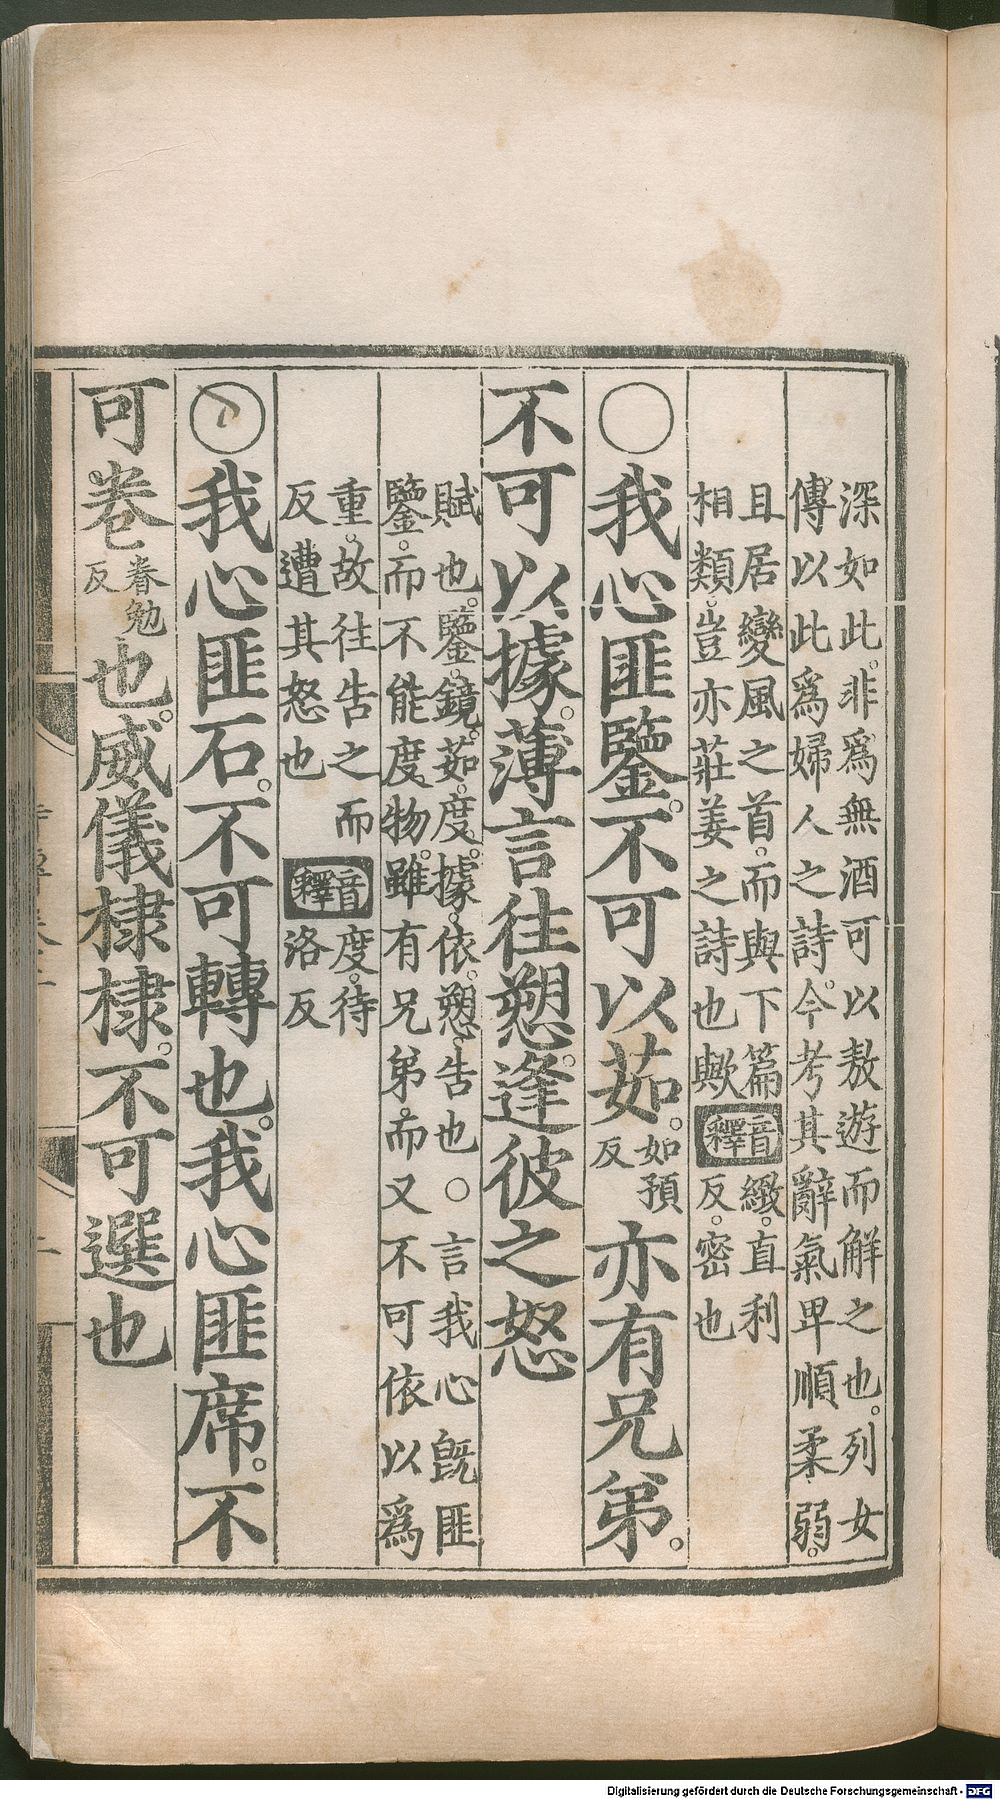 深如此。非爲無酒可以敖遊而解之也。列女
傳以此爲婦人之詩。今考其辭氣卑順柔弱。
且居變風之首。而與下篇音緻。直利
相類。豈亦莊姜之詩也歟釋反。密也
○我心匪鑒。不可以茹。如預反亦有兄弟。
不可以據。薄言往愬。逢彼之怒
賦也。鑒。鏡。茹。度。據。依。愬。告也○言我心旣匪
鑒。而不能度物。雖有兄弟。而又不可依以爲
重。故往告之而音度。待
反遭其怒也釋洛反
○我心匪石。不可轉也。我心匪席。不
可卷眷勉反也。威儀棣棣。不可選也
Digitalisierung gefördert durch die Deutsche Forschungsgemeinschaft - DFG